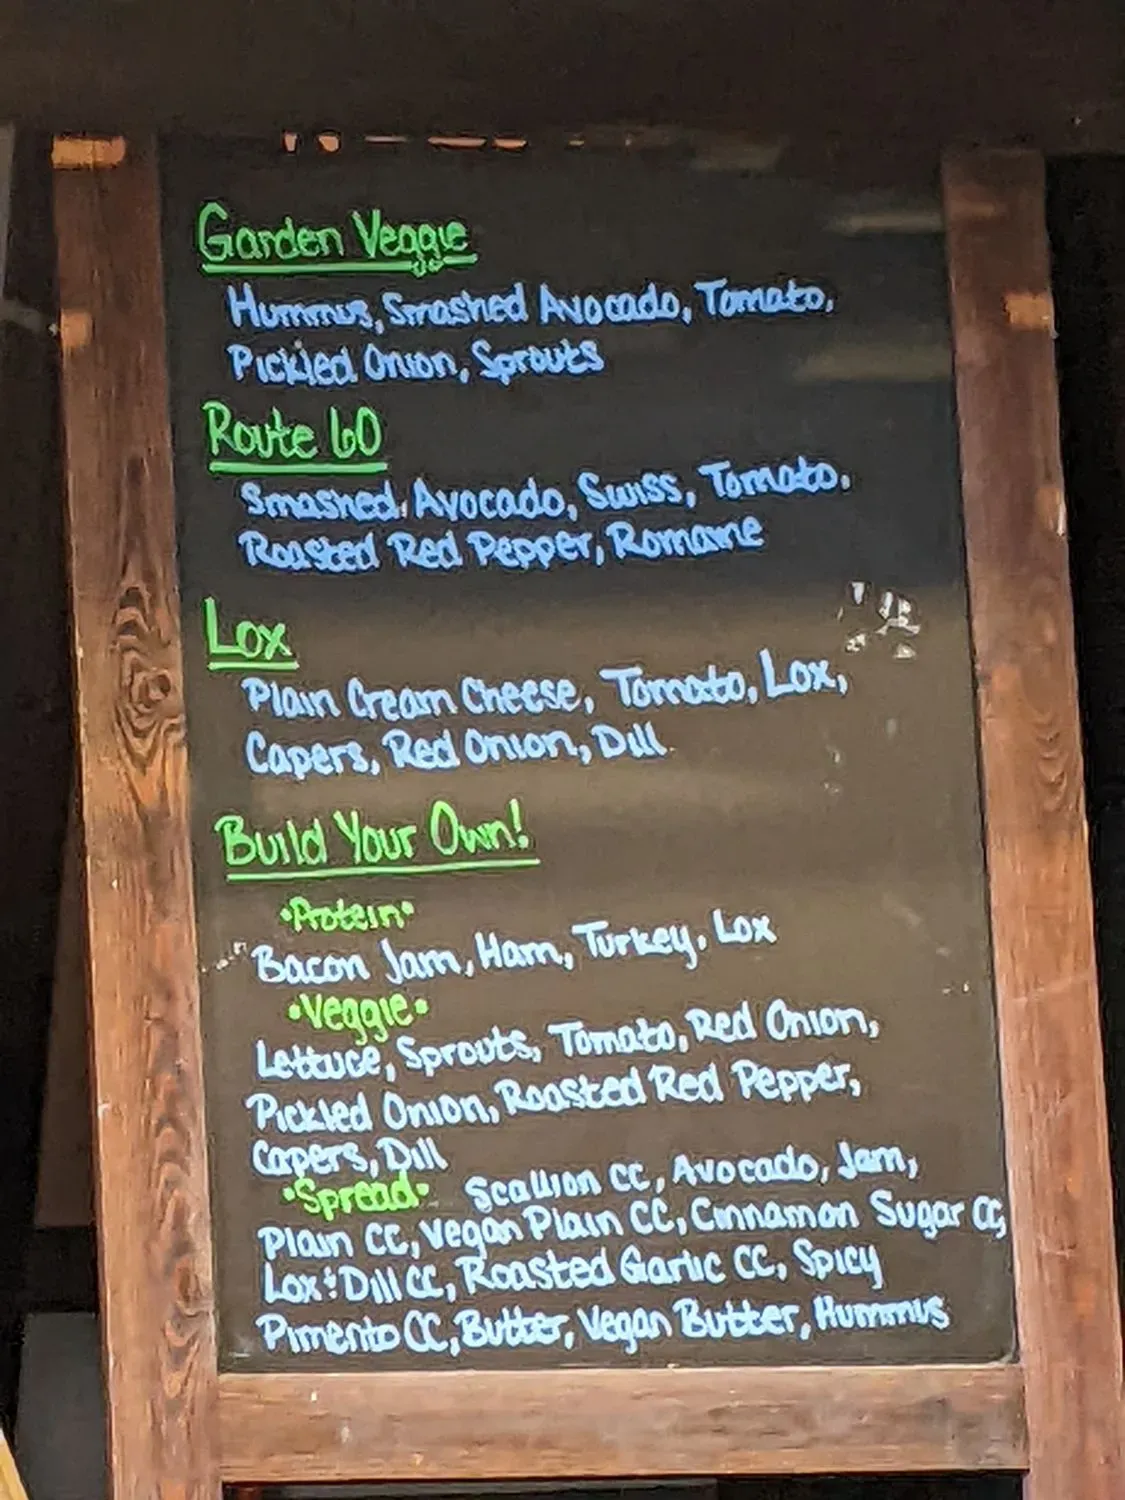 Garden Veggie
Hummus, Smashed Avocado, Tomato,
Pickled Onion, Sprouts
Route 60
Smashed Avocado, Swiss, Tomato,
Roasted Red Pepper, Romaine
Lox
Plain Cream Cheese, Tomato, Lox,
Capers, Red Onion, Dill
Build Your Own!
•Protein•
Bacon Jam, Ham, Turkey, Lox
•Veggie•
Lettuce, Sprouts, Tomato, Red Onion,
Pickled Onion, Roasted Red Pepper,
Capers, Dill
•Spread• Scallion CC, Avocado, Jam,
Plain CC, Vegan Plain CC, Cinnamon Sugar CC,
Lox & Dill CC, Roasted Garlic CC, Spicy
Pimento CC, Butter, Vegan Butter, Hummus